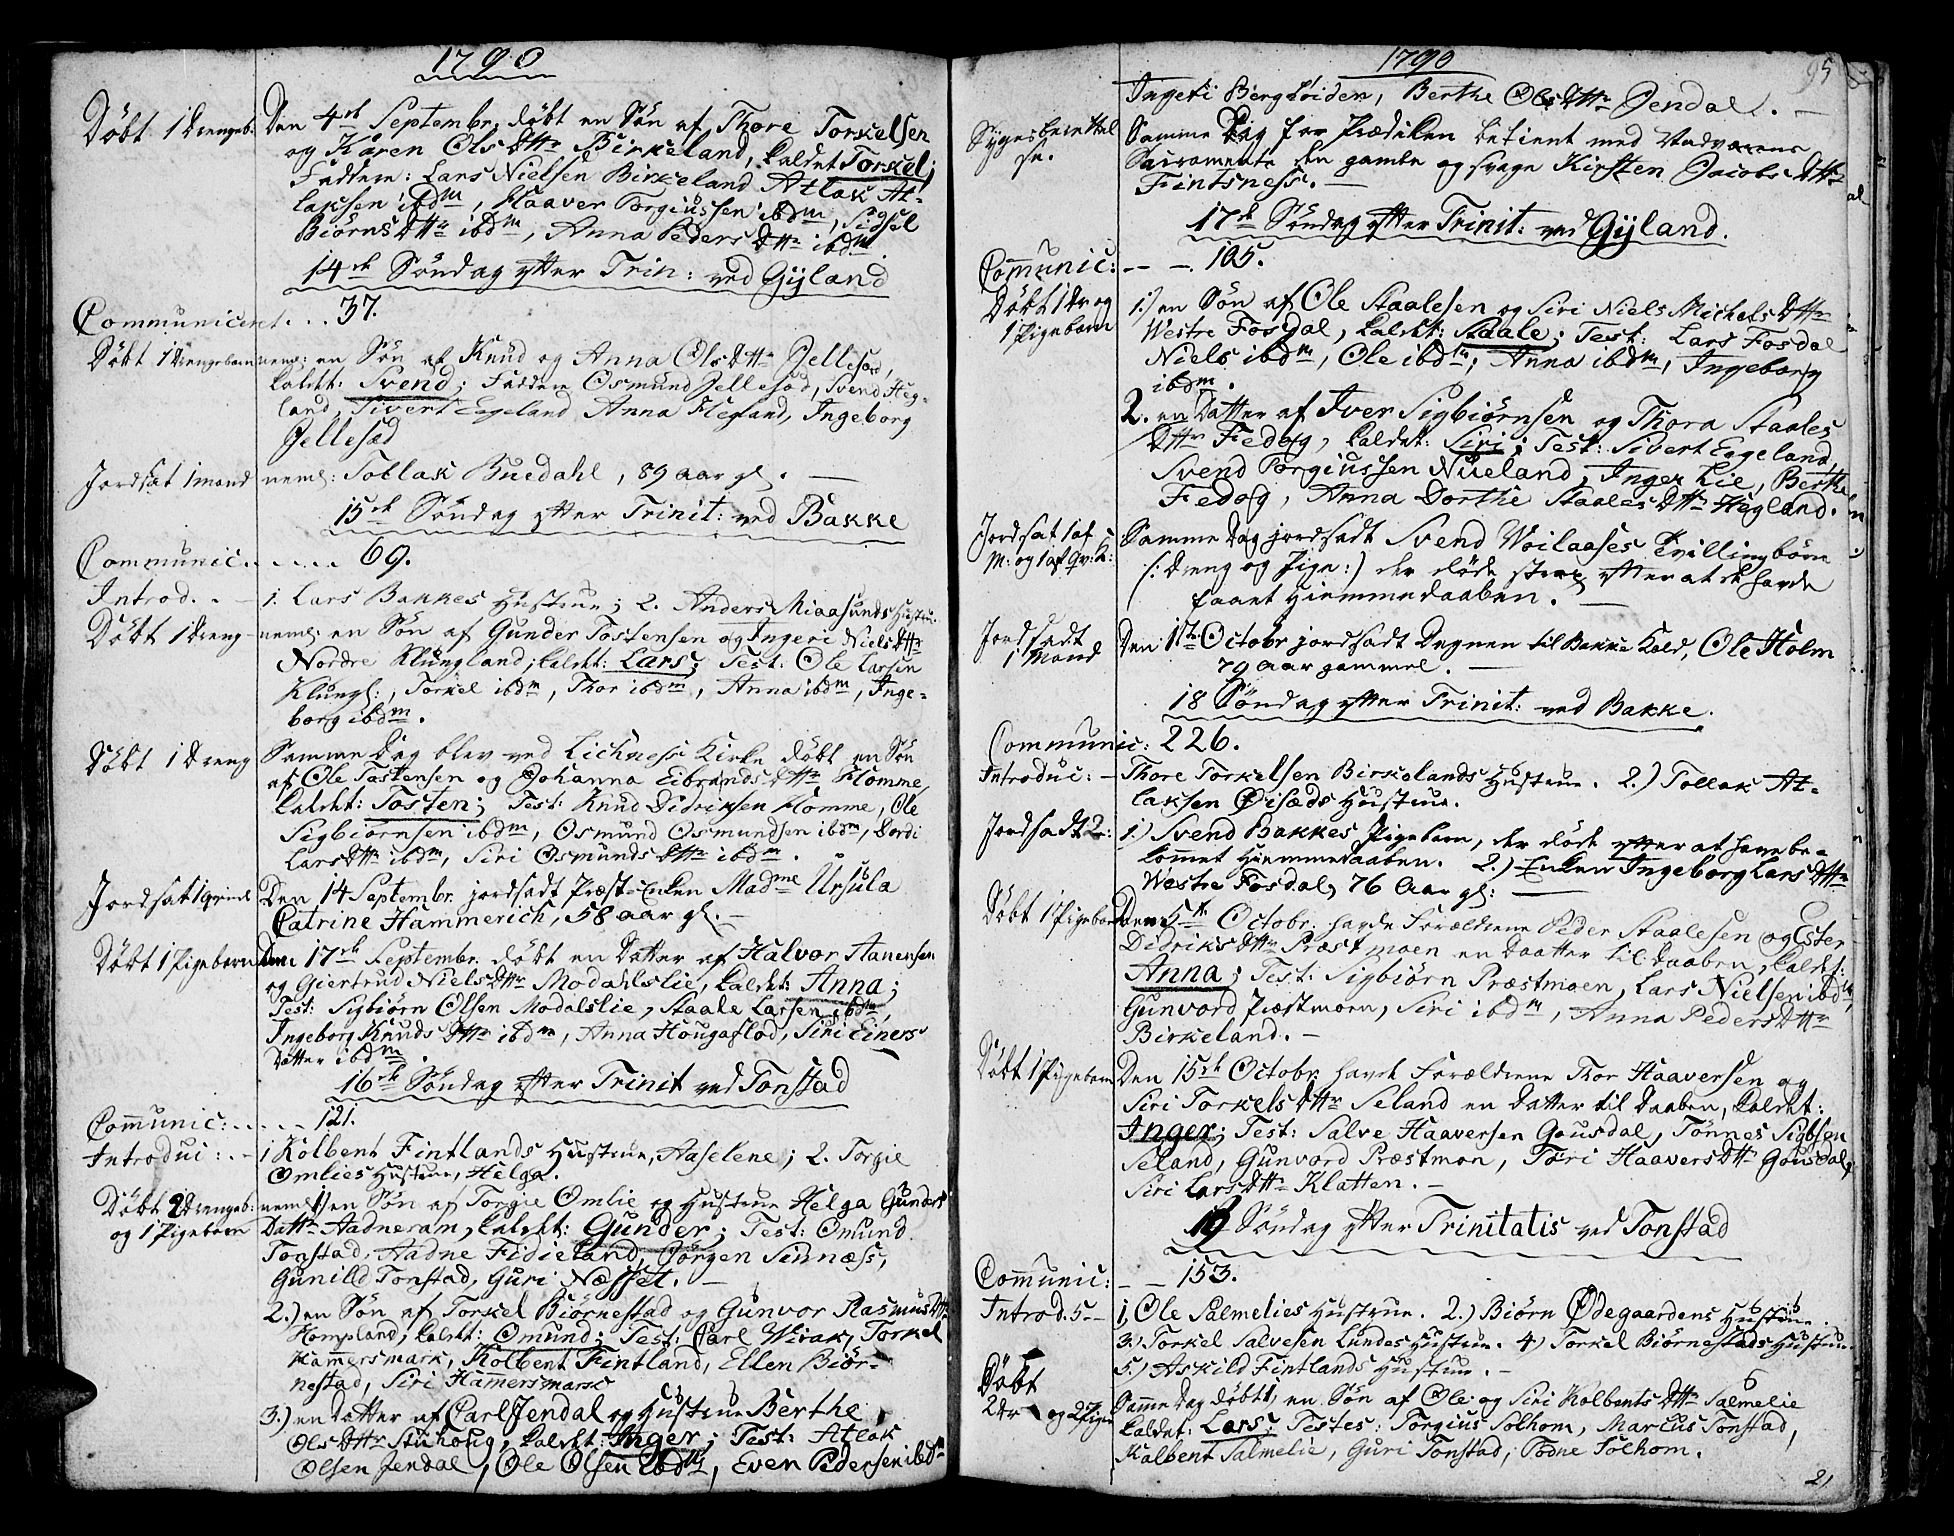 1790
Døbt 1 Drengeb. Den 4de Septembr. døbt en Søn af Thore Torkelsen
og Karen Ols Dttr Birkeland, kaldet Torkel;
Faddere: Lars Nielsen Birkeland Atlak At-
laksen ibdm, Haaver Torgiussen ibdm, Sidsel
Biørns Dttr ibdm, Anna Peders Dttr ibdm.
14de Søndag efter Trin: ved Gyland
Communiceret . . . 37.
Døbt 1 Drengebarn neml: en Søn af Knud og Anna Ols Dttr Jellesød,
kaldet: Svend; Faddere Osmund Jellesød, Svend Heg-
land, Sivert Egeland Anna Hegland, Ingeborg
Jellesæd
Jordsat 1 mand neml: Tollak Buedahl, 89 aar gl. —
15de Søndag efter Trinit: ved Bakke
Communic. . . . . . 69.
Introd. . — 1. Lars Bakkes Hustrue; 2. Anders Miaasunds Hustru.
Døbt 1 Dreng — neml: en Søn af Gunder Tostensen og Ingeri Niels Dttr
Nordre Klungland, kaldet: Lars; Test: Ole Larsen
Klungl:, Torkel ibdm, Thor ibdm, Anna ibdm, Inge-
borg ibdm.
Døbt 1 Dreng Samme Dag blev ved Lichness Kirke døbt en Søn
af Ole Tostensen og Johanna Eibrands Dttr Flomme,
kaldet: Tosten; Test: Knud Didriksen Flomme, Ole
Sigbiørnsen ibdm, Osmund Osmundsen ibdm, Dordi
Lars Dttr ibdm, Siri Osmunds Dttr ibdm.
Jordsat 1 qvinde Den 14 Septembr. jordsadt Præst-Enken Madme Ursula
Catrine Hammerich, 58 aar gl. —
Døbt 1 Pigebarn Den 17de Septembr. døbt en Datter af Halvor Aanensen
og Giertrud Niels Dttr Modahlslie, kaldet: Anna;
Test: Sigbiørn Olsen Modalslie, Staale Larsen ibdm,
Ingeborg Knuds Dttr ibdm, Anna Hougaflod, Siri Einers
Datter ibdm.
16de Søndag efter Trinit ved Tonstad
Communic: . . . . . 121.
Introduc: . — 1 Kolbent Fintlands Hustrue, Aaselene; 2. Torgie
Omlies Hustrue, Helga.
Døbt 2 Drengeb: neml 1) en Søn af Torgie Omlie og Hustrue Helga Gunders
og 1 Pigebarn Dattr Aadneram, kaldet: Gunder; Test: Omund
Tonstad, Aadne Fidieland, Jørgen Sinnæss,
Gunild Tonstad, Guri Næsset. —
2.) en Søn af Torkel Biørnestad og Gunvor Rasmus Dttr
Hompland, kaldet: Omund; Test: Carl Wirak, Torkel
Hamersmark, Kolbent Fintland, Ellen Biør-
nestad, Siri Hamersmark
3.) en Datter af Carl Jendal og Hustrue Berthe
Ols Dttr Stuhoug, kaldet: Inger; Test: Atlak
Olsen Jendal, Ole Olsen ibdm, Even Pedersen ibdm
1790
95
Ingeri Bergløiden, Berthe Ols Dttr Jendal. —
Syges berettel Samme Dag før Prædiken betient med
se. Sacramente den gamle og svage Kirsten Jacobs Dttr
Fintsness. —
17de Søndag efter Trinit: ved Gyland.
Communic: — — 105.
Døbt 1 Dr og 1.) en Søn af Ole Staalesen og Siri Niels Michels Dttr
1 Pigebarn Westre Fosdal, kaldet: Staale; Test: Lars Fosdal
Niels ibdm, Ole ibdm, Anna ibdm, Ingeborg
ibdm.
2. en Datter af Iver Sigbiørnsen og Thora Staales
Dttr Fedog, kaldet: Siri; Test: Sivert Eegeland,
Svend Torgiussen Nueland, Inger Lie, Berthe
Fedog, Anna Dorthe Staales Dttr Hegland.
Jordsat 1 af Samme Dag jordsadt Svend Woilaases Tvillingbørn
M: og 1 af Qv:K: (: Dreng og Pige:) der døde strax efter at de havde
faaet Hiemmedaaben. —
Jordsadt Den 1ste Octobr jordsadt Degnen til Bakke Kald, Ole Holm
1 Mand 79 aar gammel. —
18 Søndag efter Trinit: ved Bakke.
Communic: 226.
Introduc: — Thore Torkelsen Birkelands Hustrue. 2.) Tollak At-
laksen Øisæds Hustrue.
Jordsadt 2: 1.) Svend Bakkes Pigebarn, der døde efter at have be-
kommet Hiemmedaaben. 2.) Enken Ingeborg Lars Dttr
Westre Fosdal, 76 Aar gl: —
Døbt 1 Pigebarn Den 5te Octobr. havde Forældrene Peder Staalesen og Ester
Didriks Dttr Præstmoen en Daatter til Daaben, kaldet:
Anna; Test: Sigbiørn Præstmoen, Lars Nielsen ibdm,
Gunvord Præstmoen, Siri ibdm, Anna Peders Dttr
Birkeland. —
Døbt 1 Pigebarn Den 15de Octobr. havde Forældrene Thor Haaversen og
Siri Torkels Dttr Seland en Datter til Daaben, kaldet:
Inger; Test: Salve Haaversen Gousdal, Tønnes Sigbsen
Seland, Gunvord Præstmon, Tøri Haavers Dttr Gousdal,
Siri Lars Dttr Klatten. —
19 Søndag efter Trinitatis ved Tonstad
Communic: — — 153.
Introd. 5 — 1, Ole Salmelies Hustrue. 2.) Biørn Ødegaardens Hustrue.
3.) Torkel Salvesen Lundes Hustrue. 4) Torkel Biørnestads Hustrue
5.) Askild Fintlands Hustrue. —
Døbt Samme Dag døbt 1, en Søn af Ole og Siri Kolbents Dttr Salmelie
2 Dr og 2 Piger kaldet: Lars; Testes: Torgius Solhom, Marcus Tonstad,
Kolbent Salmelie, Guri Tonstad, Todne Solhom.
2,